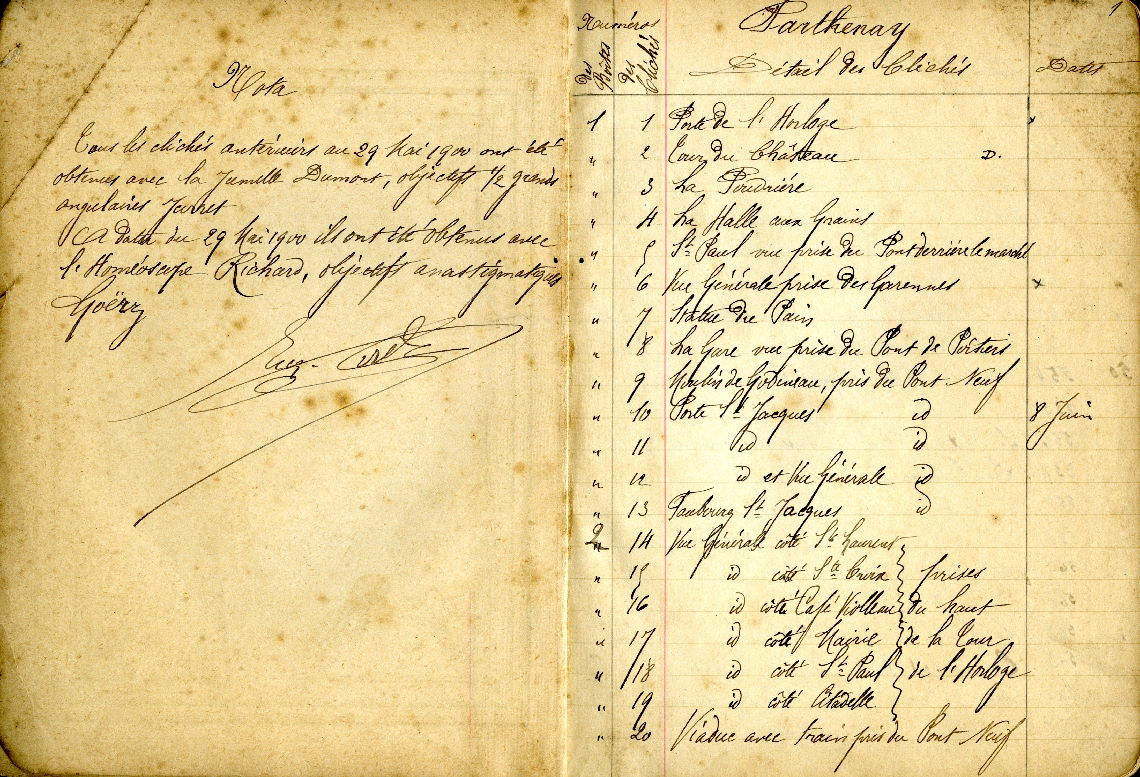 Nota
Tous les clichés antérieurs au 29 Mai 1900 ont été
obtenus avec la Jumelle Dumont, objectifs 1/2 grands
angulaires Jarret
A dater du 29 Mai 1900 ils ont été obtenus avec
l'Homéoscope Richard, objectifs anastigmatiques
Goërz
Eug.
1
Numéros
des Boîtes
des Clichés
Parthenay
Détail des Clichés
Dates
1 1 Porte de l'Horloge
" 2 Tour du Château D.
" 3 La Poudrière
" 4 La Halle aux Grains
" 5 St Paul vue prise du Pont derrière le marché
" 6 Vue Générale prise des Garennes x
" 7 Statue du Pain
" 8 La Gare vue prise du Pont de Poitiers
" 9 Moulin de Godineau, pris du Pont Neuf
" 10 Porte St Jacques id 8 Juin
" 11 id id
" 12 id et Vue Générale id
" 13 Faubourg St Jacques id
2 " 14 Vue Générale côté St Laurent
" 15 id côté Ste Croix } prises
" 16 id côté Café Violleau } du haut
" 17 id côté Mairie } de la Tour
" 18 id côté St Paul } de l'Horloge
" 19 id côté Citadelle
" 20 Viaduc avec train pris du Pont Neuf